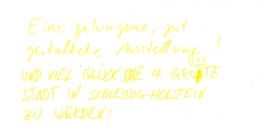 Eine gelungene, gut
gestaltete Ausstellung!
UND VIEL GLÜCK DIE 4. GRÖSSTE
STADT IN SCHLESWIG-HOLSTEIN
ZU WERDEN!